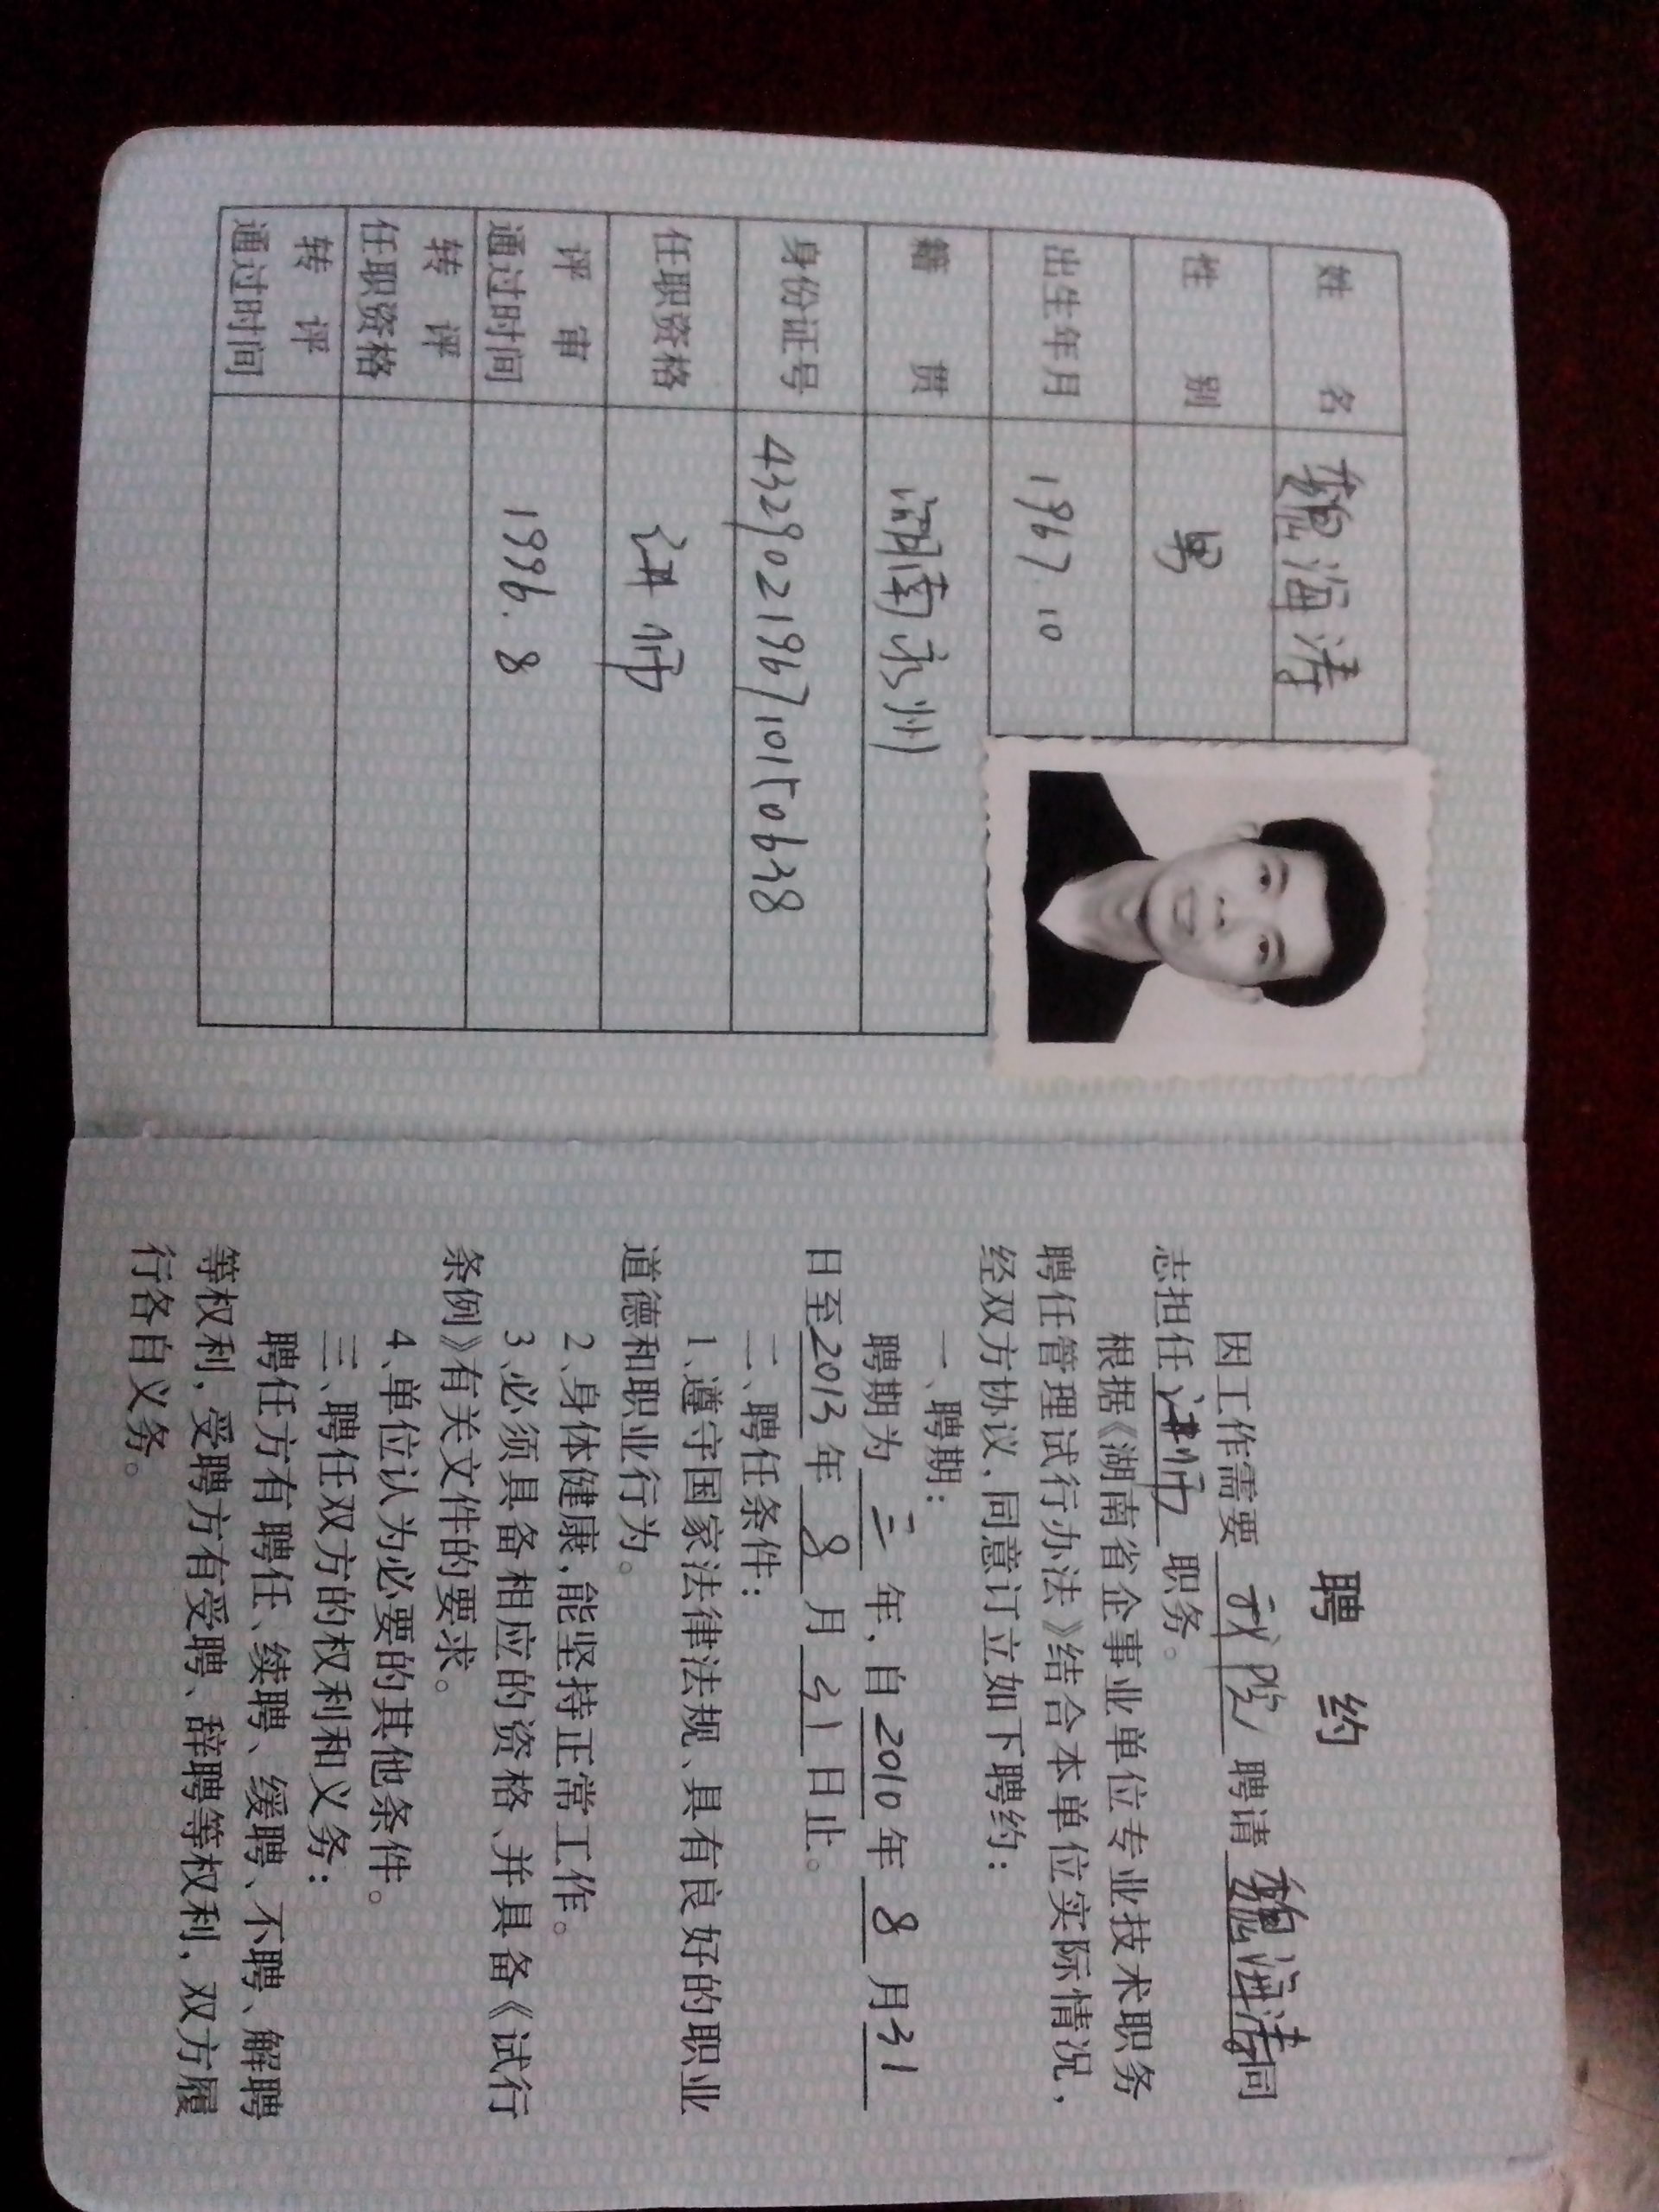 姓 名 魏海涛
性 别 男
出生年月 1967 10
籍 贯 湖南永州
身份证号 432902196710150638
任职资格 讲师
评 审
通过时间 1996. 8
转 评
任职资格
转 评
通过时间
聘 约
因工作需要 我院 聘请 魏海涛同
志担任讲师 职务。
根据《湖南省企事业单位专业技术职务
聘任管理试行办法》结合本单位实际情况，
经双方协议，同意订立如下聘约：
一、聘期：
聘期为 三 年，自2010年 8 月31
日至2013年 8 月 31 日止。
二、聘任条件：
1、遵守国家法律法规、具有良好的职业
道德和职业行为。
2、身体健康，能坚持正常工作。
3、必须具备相应的资格、并具备《试行
条例》有关文件的要求。
4、单位认为必要的其他条件。
三、聘任双方的权利和义务：
聘任方有聘任、续聘、缓聘、不聘、解聘
等权利，受聘方有受聘、辞聘等权利，双方履
行各自义务。